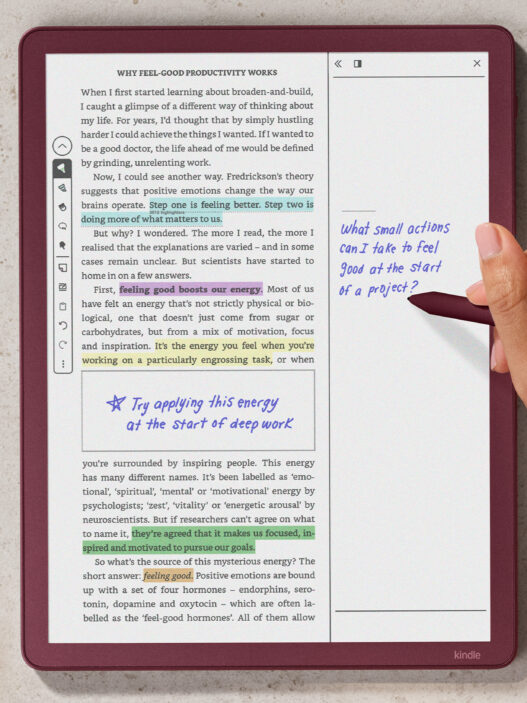 WHY FEEL-GOOD PRODUCTIVITY WORKS
When I first started learning about broaden-and-build,
I caught a glimpse of a different way of thinking about
my life. For years, I'd thought that by simply hustling
harder I could achieve the things I wanted. If I wanted to
be a good doctor, the life ahead of me would be defined
by grinding, unrelenting work.
Now, I could see another way. Fredrickson's theory
suggests that positive emotions change the way our
brains operate. Step one is feeling better. Step two is
doing more of what matters to us.
But why? I wondered. The more I read, the more I
realised that the explanations are varied – and in some
cases remain unclear. But scientists have started to
home in on a few answers.
First, feeling good boosts our energy. Most of us
have felt an energy that's not strictly physical or bio-
logical, one that doesn't just come from sugar or
carbohydrates, but from a mix of motivation, focus
and inspiration. It's the energy you feel when you're
working on a particularly engrossing task, or when
☆ Try applying this energy
at the start of deep work
you're surrounded by inspiring people. This energy
has many different names. It's been labelled as 'emo-
tional', 'spiritual', 'mental' or 'motivational' energy by
psychologists; 'zest', 'vitality' or 'energetic arousal' by
neuroscientists. But if researchers can't agree on what
to name it, they're agreed that it makes us focused, in-
spired and motivated to pursue our goals.
So what's the source of this mysterious energy? The
short answer: feeling good. Positive emotions are bound
up with a set of four hormones – endorphins, sero-
tonin, dopamine and oxytocin – which are often la-
belled as the 'feel-good hormones'. All of them allow
What small actions
can I take to feel
good at the start
of a project?
kindle